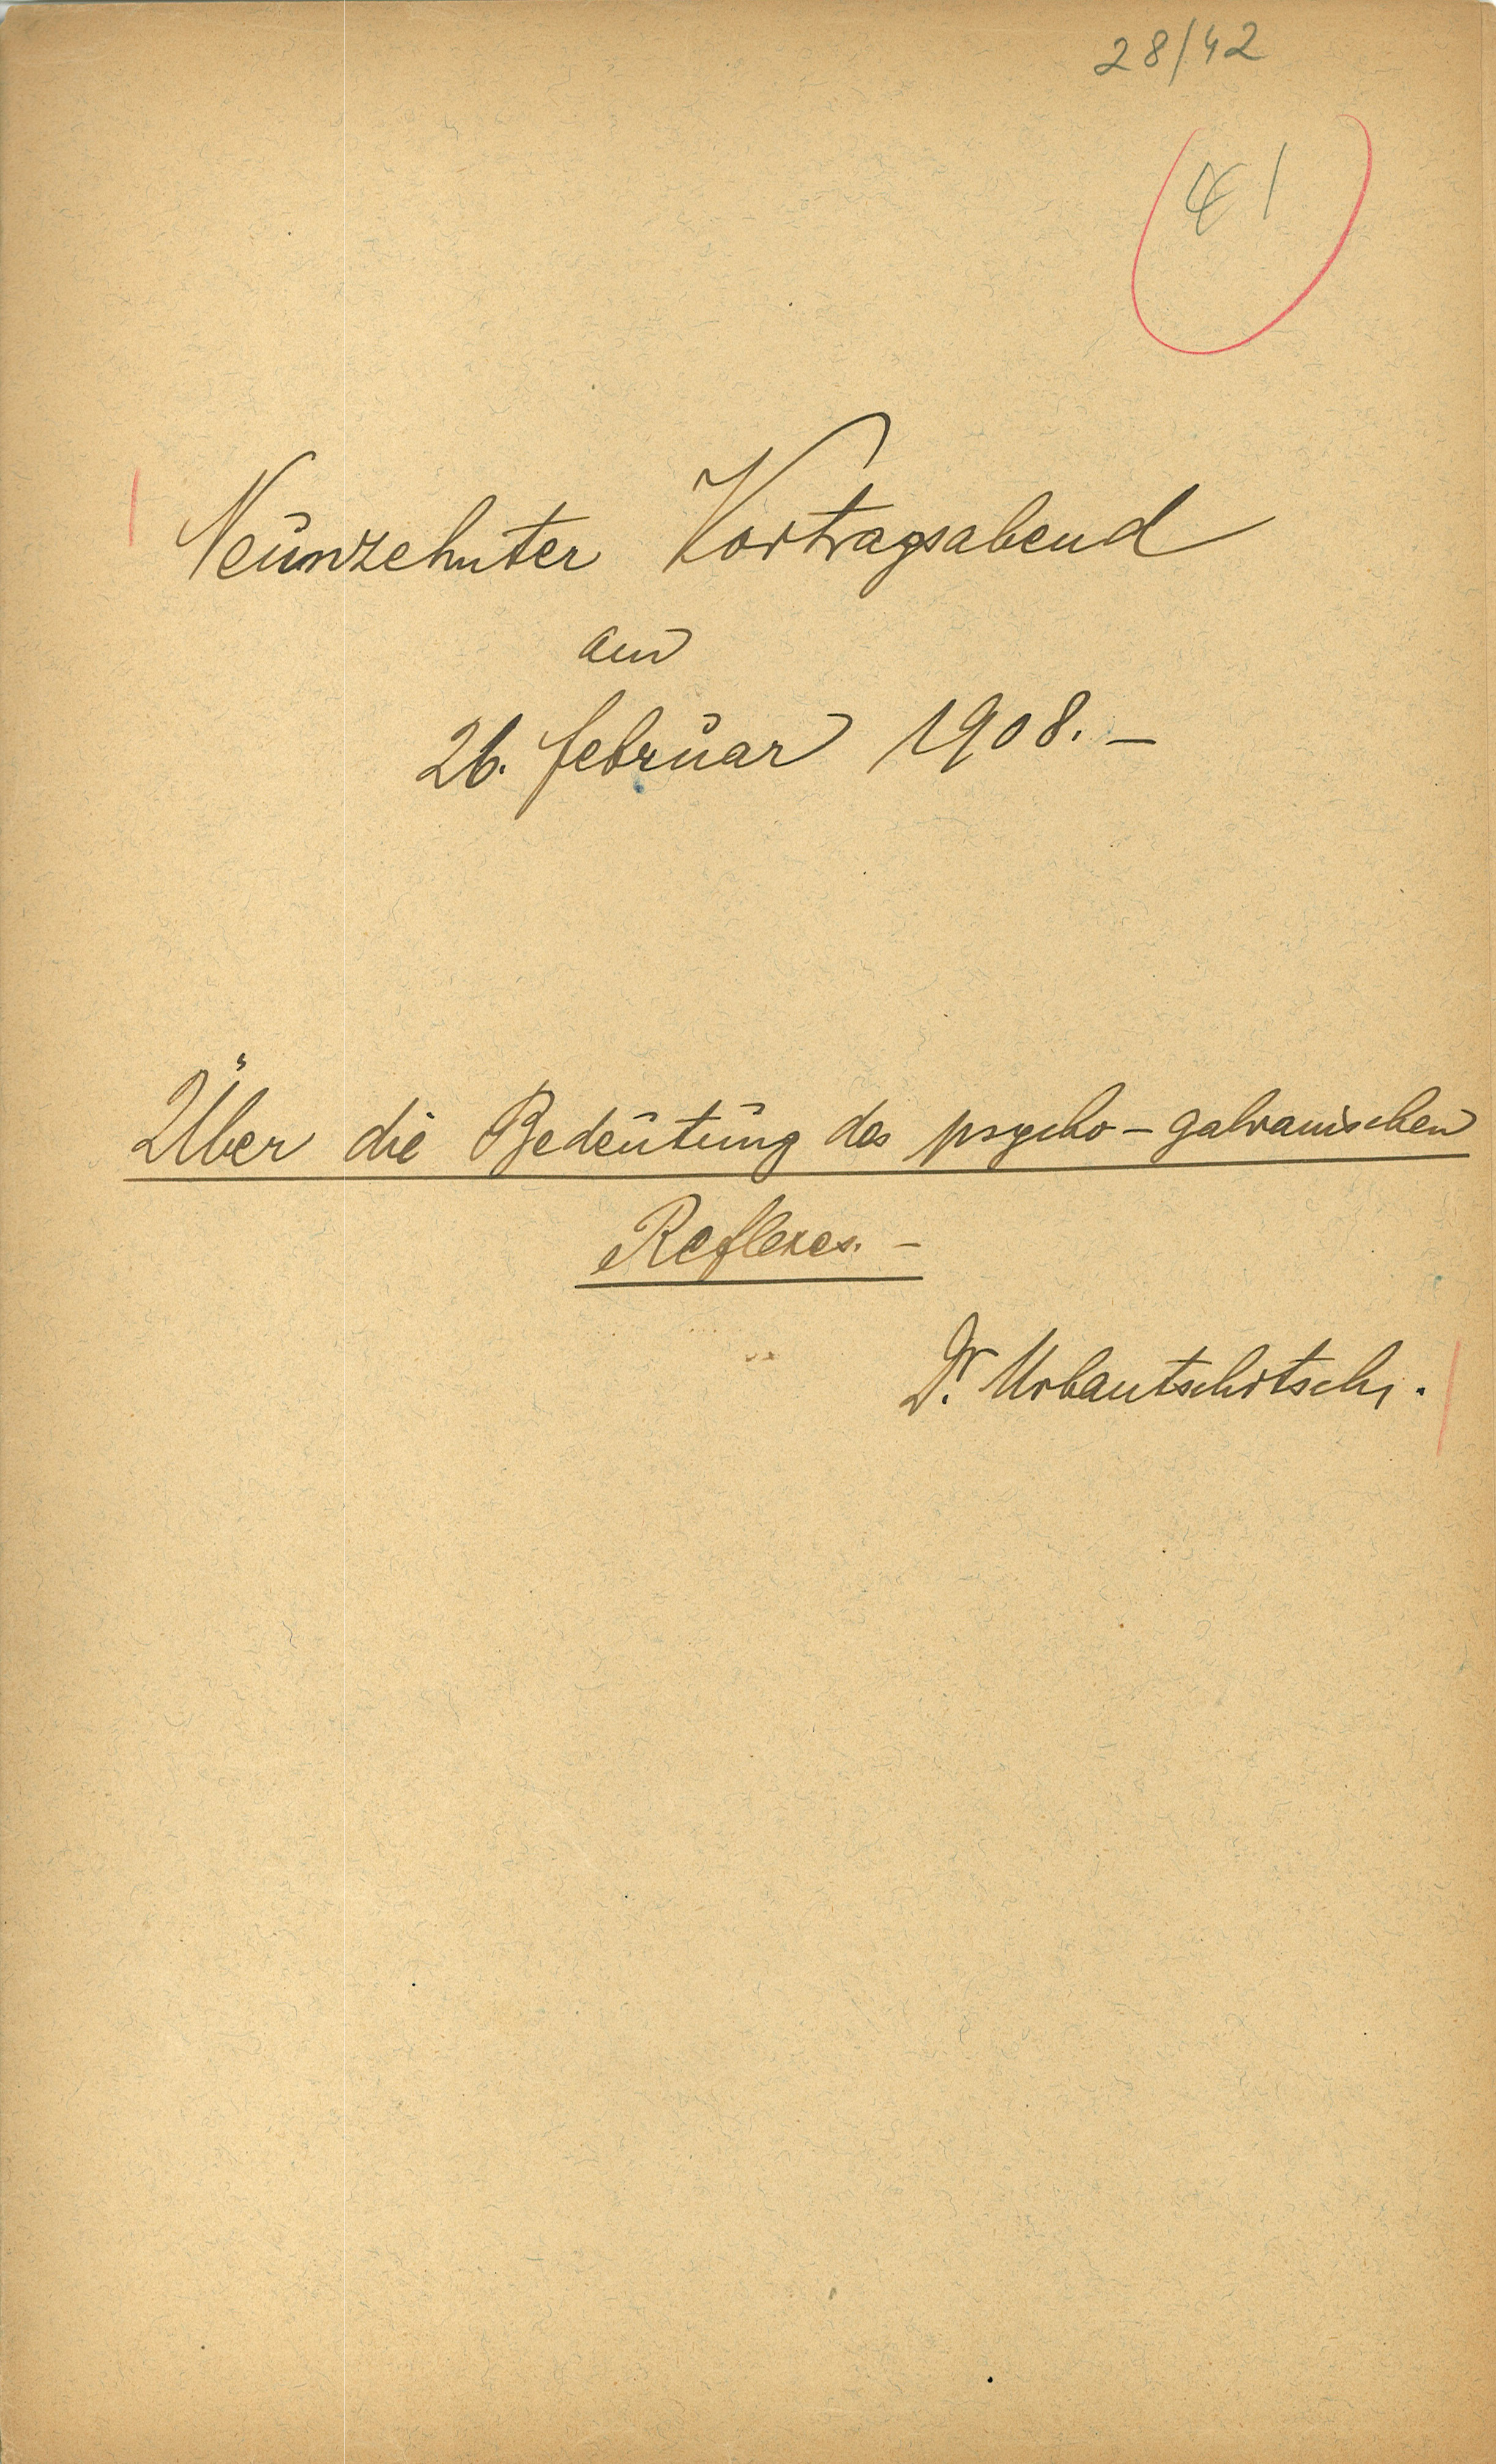 28/42
41
Neunzehnter Vortragsabend
am
26. Februar 1908. –
Über die Bedeutung des psycho-galvanischen
Reflexes. –
Dr. Urbantschitsch.